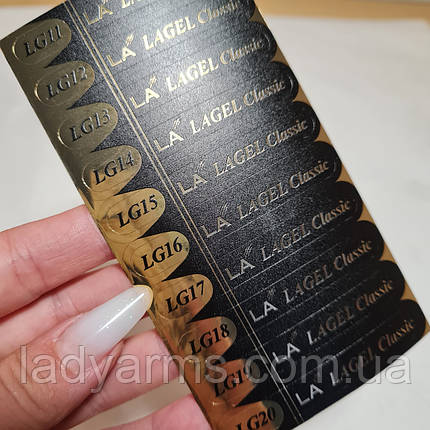 LG11
LA LAGEL Classic
LG12
LA LAGEL Classic
LG13
LA LAGEL Classic
LG14
LA LAGEL Classic
LG15
LA LAGEL Classic
LG16
LA LAGEL Classic
LG17
LA LAGEL Classic
LG18
LA LAGEL Classic
LG19
LA LAGEL Classic
LG20
ladyarms.com.ua